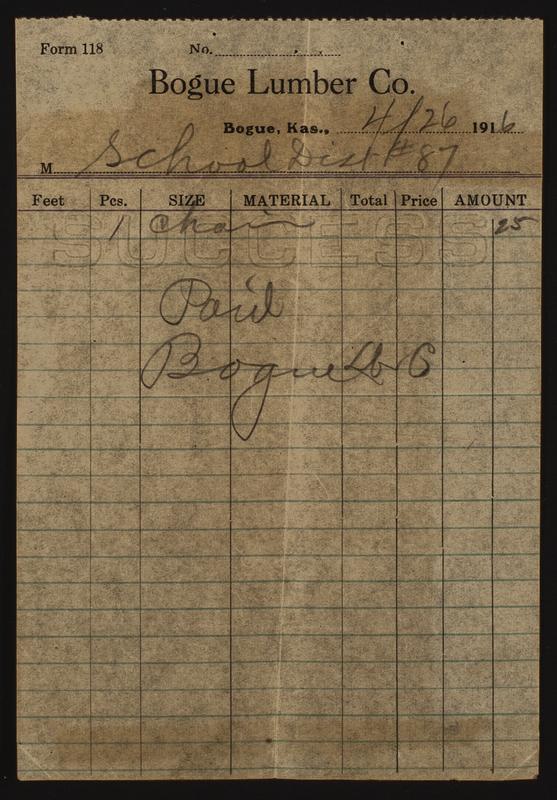 Form 118 No.
Bogue Lumber Co.
Bogue, Kas., 4/26 1916
M School Dist #87
Feet Pcs. SIZE MATERIAL Total Price AMOUNT
1 chain 25
SUCCESS
Paid
Bogue Lbr C